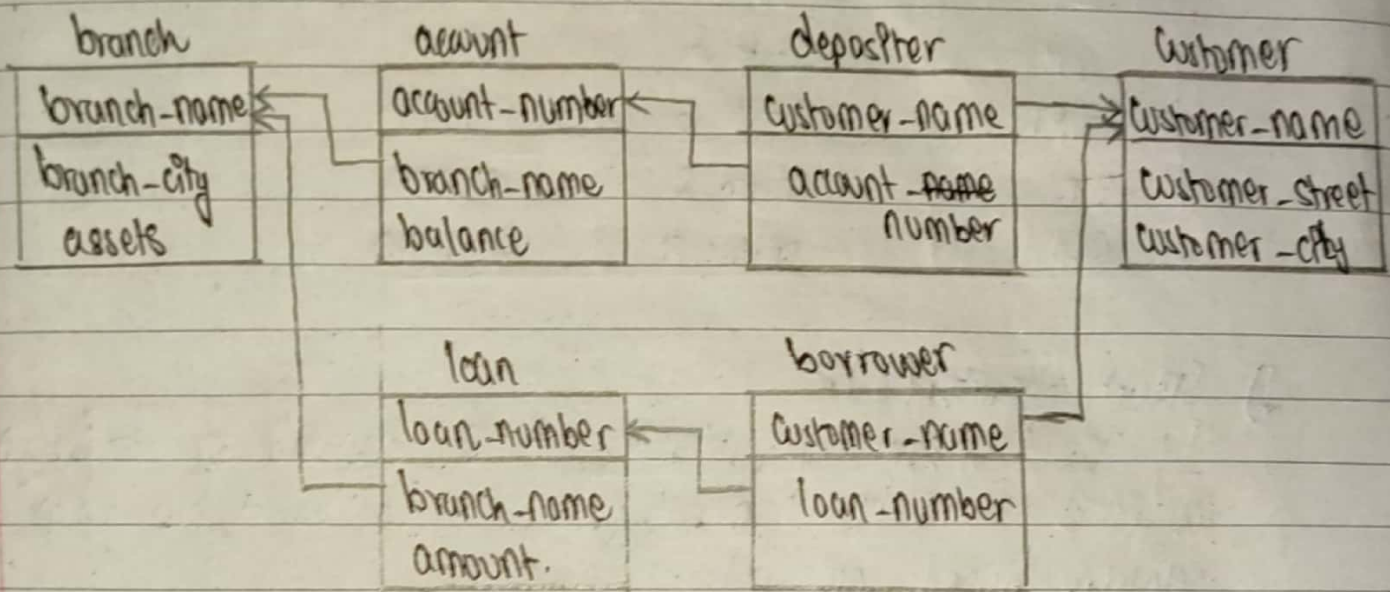 branch
branch_name
branch_city
assets
account
account_number
branch_name
balance
depositer
customer_name
account_name
number
Customer
Customer_name
customer_street
customer_city
loan
loan_number
branch_name
amount.
borrower
customer_name
loan_number